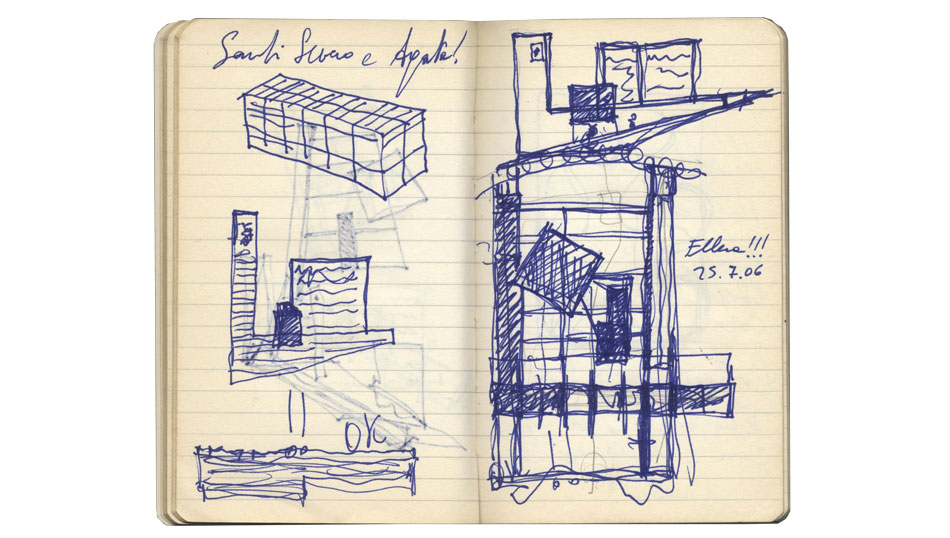 Santi Severo e Agata!
OK
Ellera!!!
25.7.06